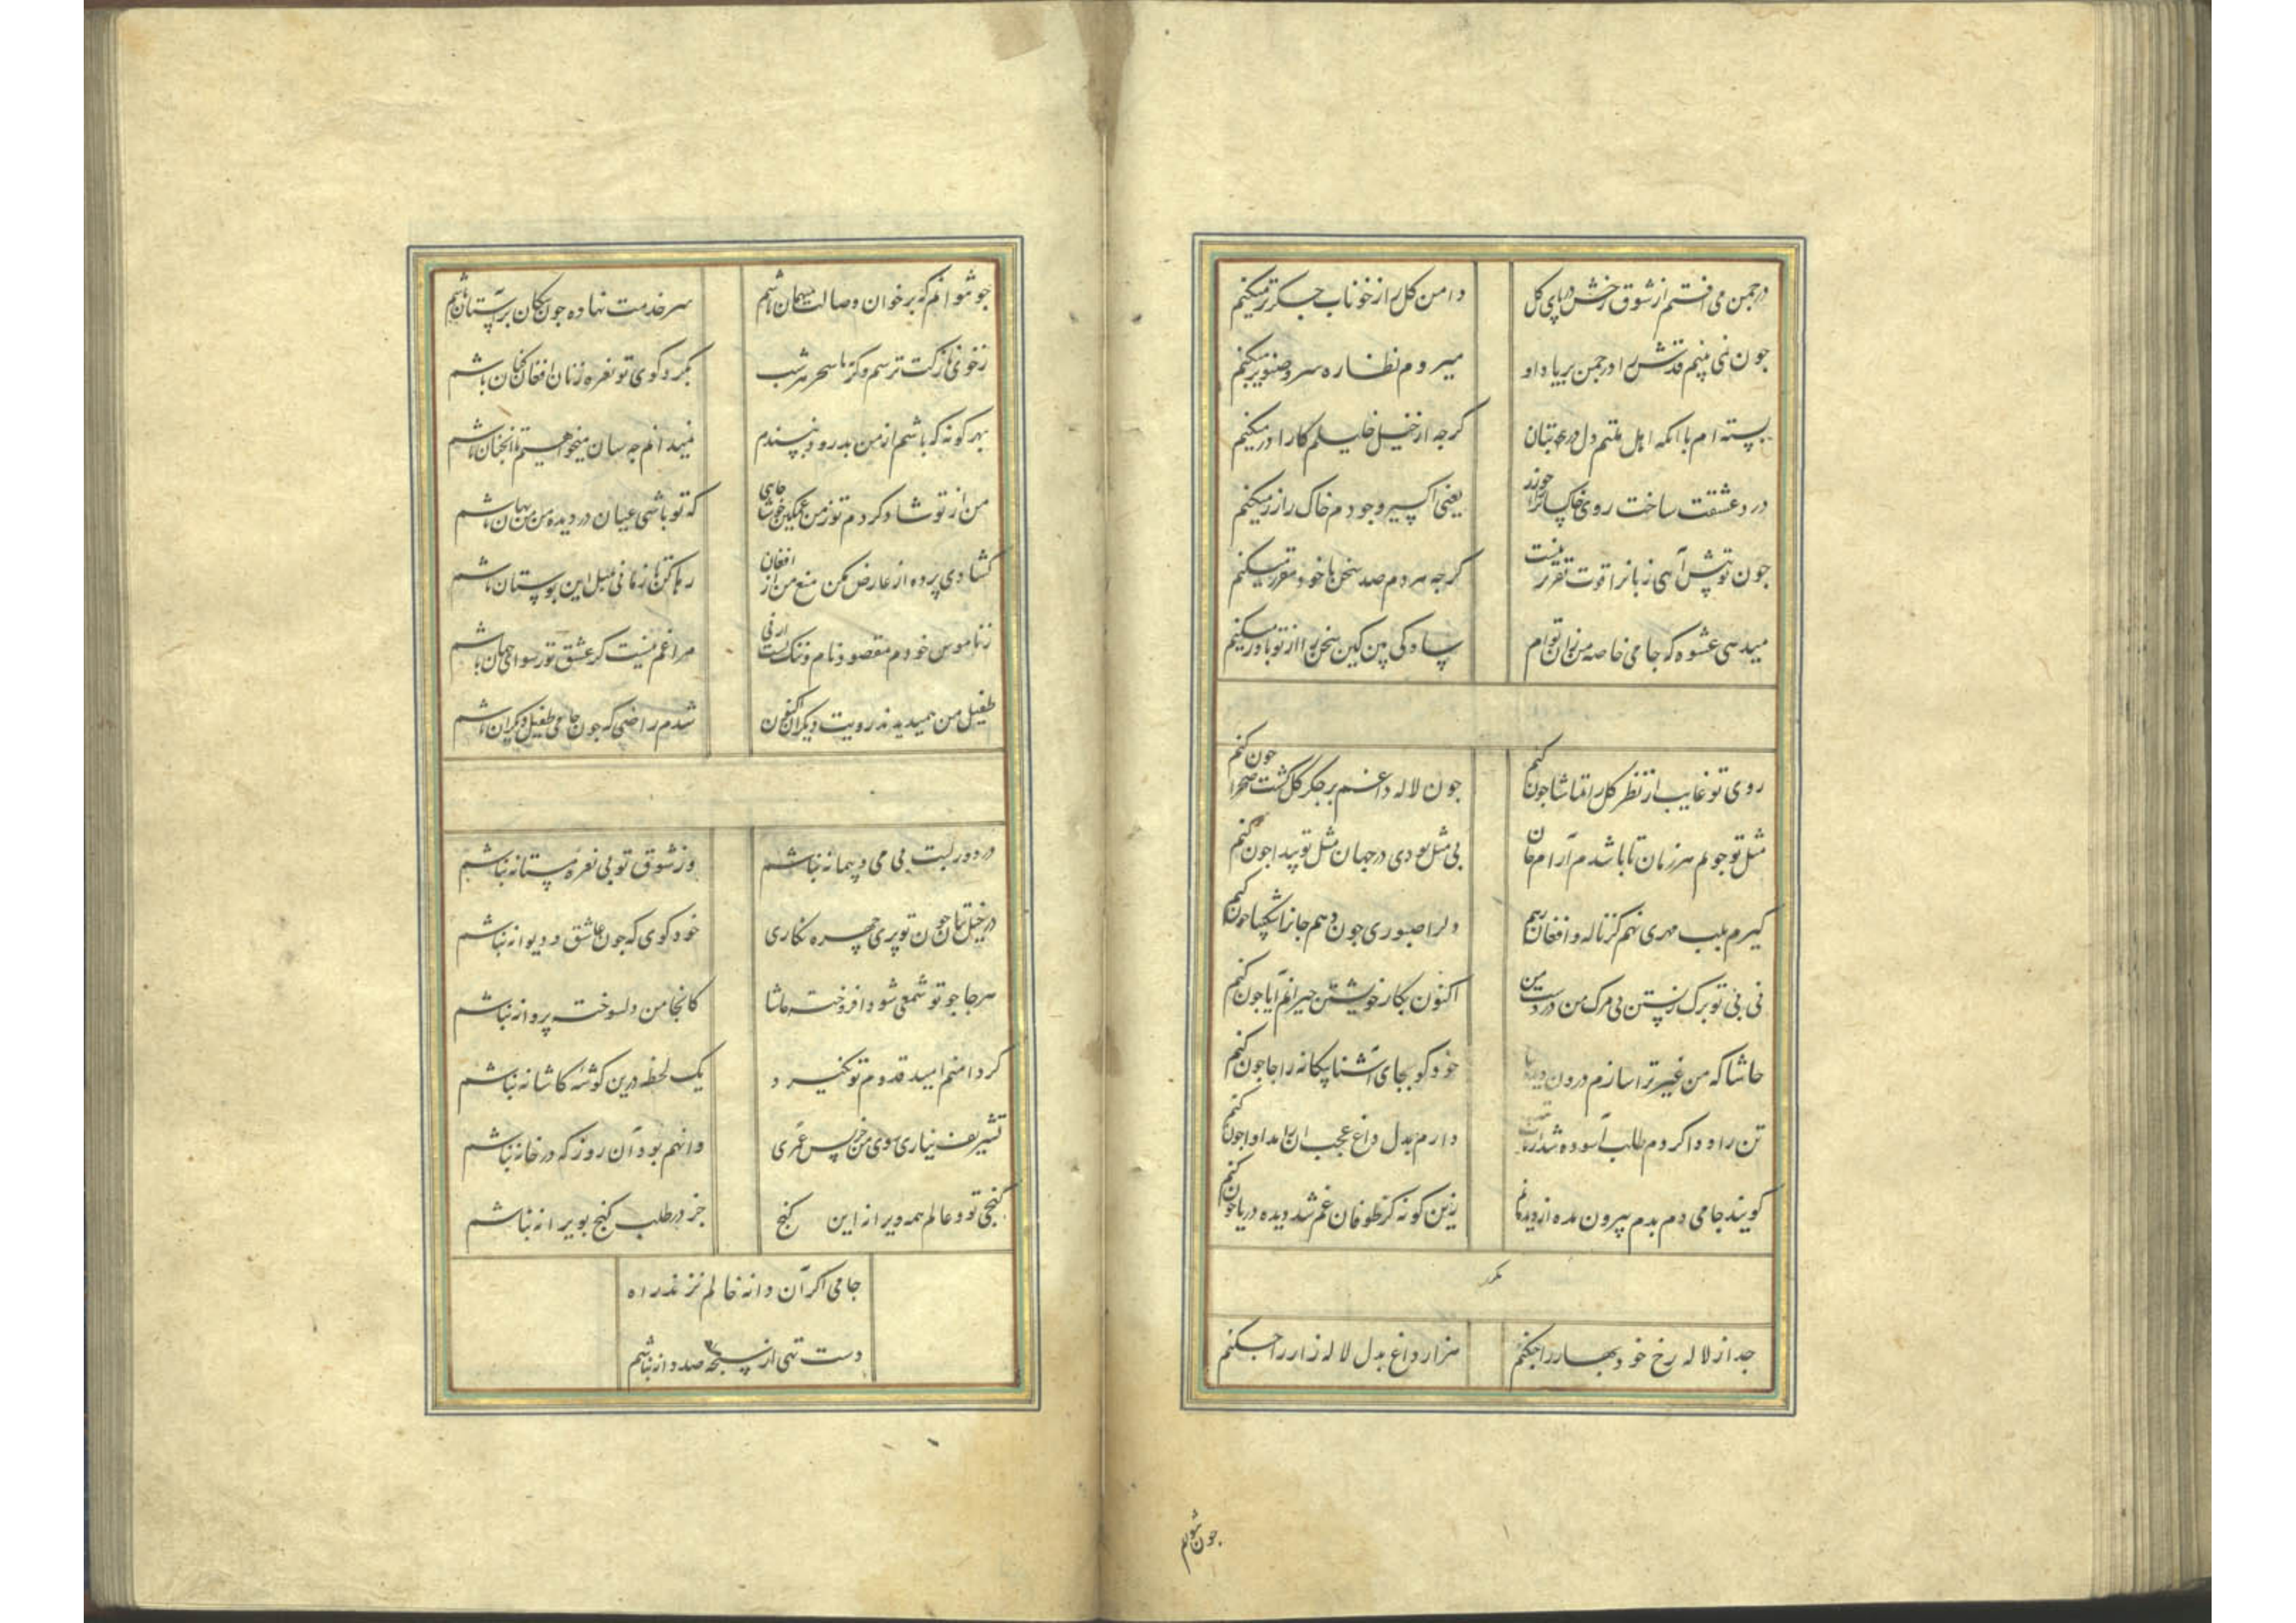 درچمن می افتم از شوق رخش در پای کل
دامن کل را ز خوناب جکر تر میکنم
چون نمی بینم قدش را در چمن بر یاد او
میروم نظاره سرو صنوبر میکنم
بسته ام با آنکه اهل ملتم دل در بتان
کرچه از خیل خلیلم کار آذر میکنم
درد عشقت ساخت روی خاکساران را چو زر
یعنی اکسیر وجودم خاک را زر میکنم
چون تو پیش آیی زبانرا قوت تقریر نیست
کرچه هر دم صد سخن با خود مقرر میکنم
میدهی عشوه که جامی خاصه من زان توام
ساده کی بین کین سخن را از تو باور میکنم
روی تو غایب از نظر کل را تماشا چون کنم
چون لاله داغم بر جکر کل کشت صحرا چون کنم
مثل تو جویم هر زمان تا باشد م آرام جان
بی مثل بودی در جهان مثل تو پیدا چون کنم
کیرم بلب مهری نهم کز ناله و افغان رهم
دلرا صبوری چون دهم جانرا شکیبا چون کنم
نی بی تو برک زیستن نی مرک من در دست من
اکنون بکار خویشتن حیرانم آیا چون کنم
حاشا که من غیر ترا سازم درون دیده جا
خود کو بجای آشنا بیکانه را جا چون کنم
تن را دوا کردم طلب آسوده شد از تاب تب
دارم بدل داغ عجب آن را مداوا چون کنم
کویند جامی دم بدم بیرون مده از دیده نم
زین کونه کز طوفان غم شد دیده دریا چون کنم
مکرر
جدا ز لاله رخ خود بهار را چکنم
هزار داغ بدل لاله زار را چکنم
چون شوانم
چو نتوانم که بر خوان وصالت میهمان باشم
سر خدمت نهاده چون سکان بر آستان باشم
ز خوی نازکت ترسم وکرنه تا سحر هر شب
بکرد کوی تو نعره زنان افغان کنان باشم
بهر کونه که باشم از من بدروز نپسندم
نمیدانم چه سان میخواهیم تا آنچنان باشم
من از تو شاد کردم تو ز من غمکین خوشا جایی
که تو باشی عیان در دیده من من نهان باشم
کشادی پرده از عارض مکن منع من از افغان
رها کن تا زمانی بلبل این بوستان باشم
ز ناموس خودم مقصود نام و ننک تست ارنی
مرا غم نیست کر عشق تو رسوای جهان باشم
طفیل من همیدیدند رویت دیکران اکنون
شدم راضی که چون جامی طفیل دیکران باشم
در دور لبت بی می و پیمانه نباشم
وز شوق تو بی نعره مستانه نباشم
در خیل بتان چون تو پری چهره نکاری
خود کوی که چون عاشق و دیوانه نباشم
هر جا چو تو شمعی شود افروخته حاشا
کانجا من دلسوخته پروانه نباشم
کر دامنم امید قدوم تو نکیرد
یک لحظه درین کوشه کاشانه نباشم
تشریف نیاری سوی من جز پس عمری
وانهم بود آن روز که در خانه نباشم
کنجی تو و عالم همه ویرانه این کنج
جز در طلب کنج بویرانه نباشم
جامی اکر آن دانه خالم نزند راه
دست تهی از سبحه صد دانه نباشم